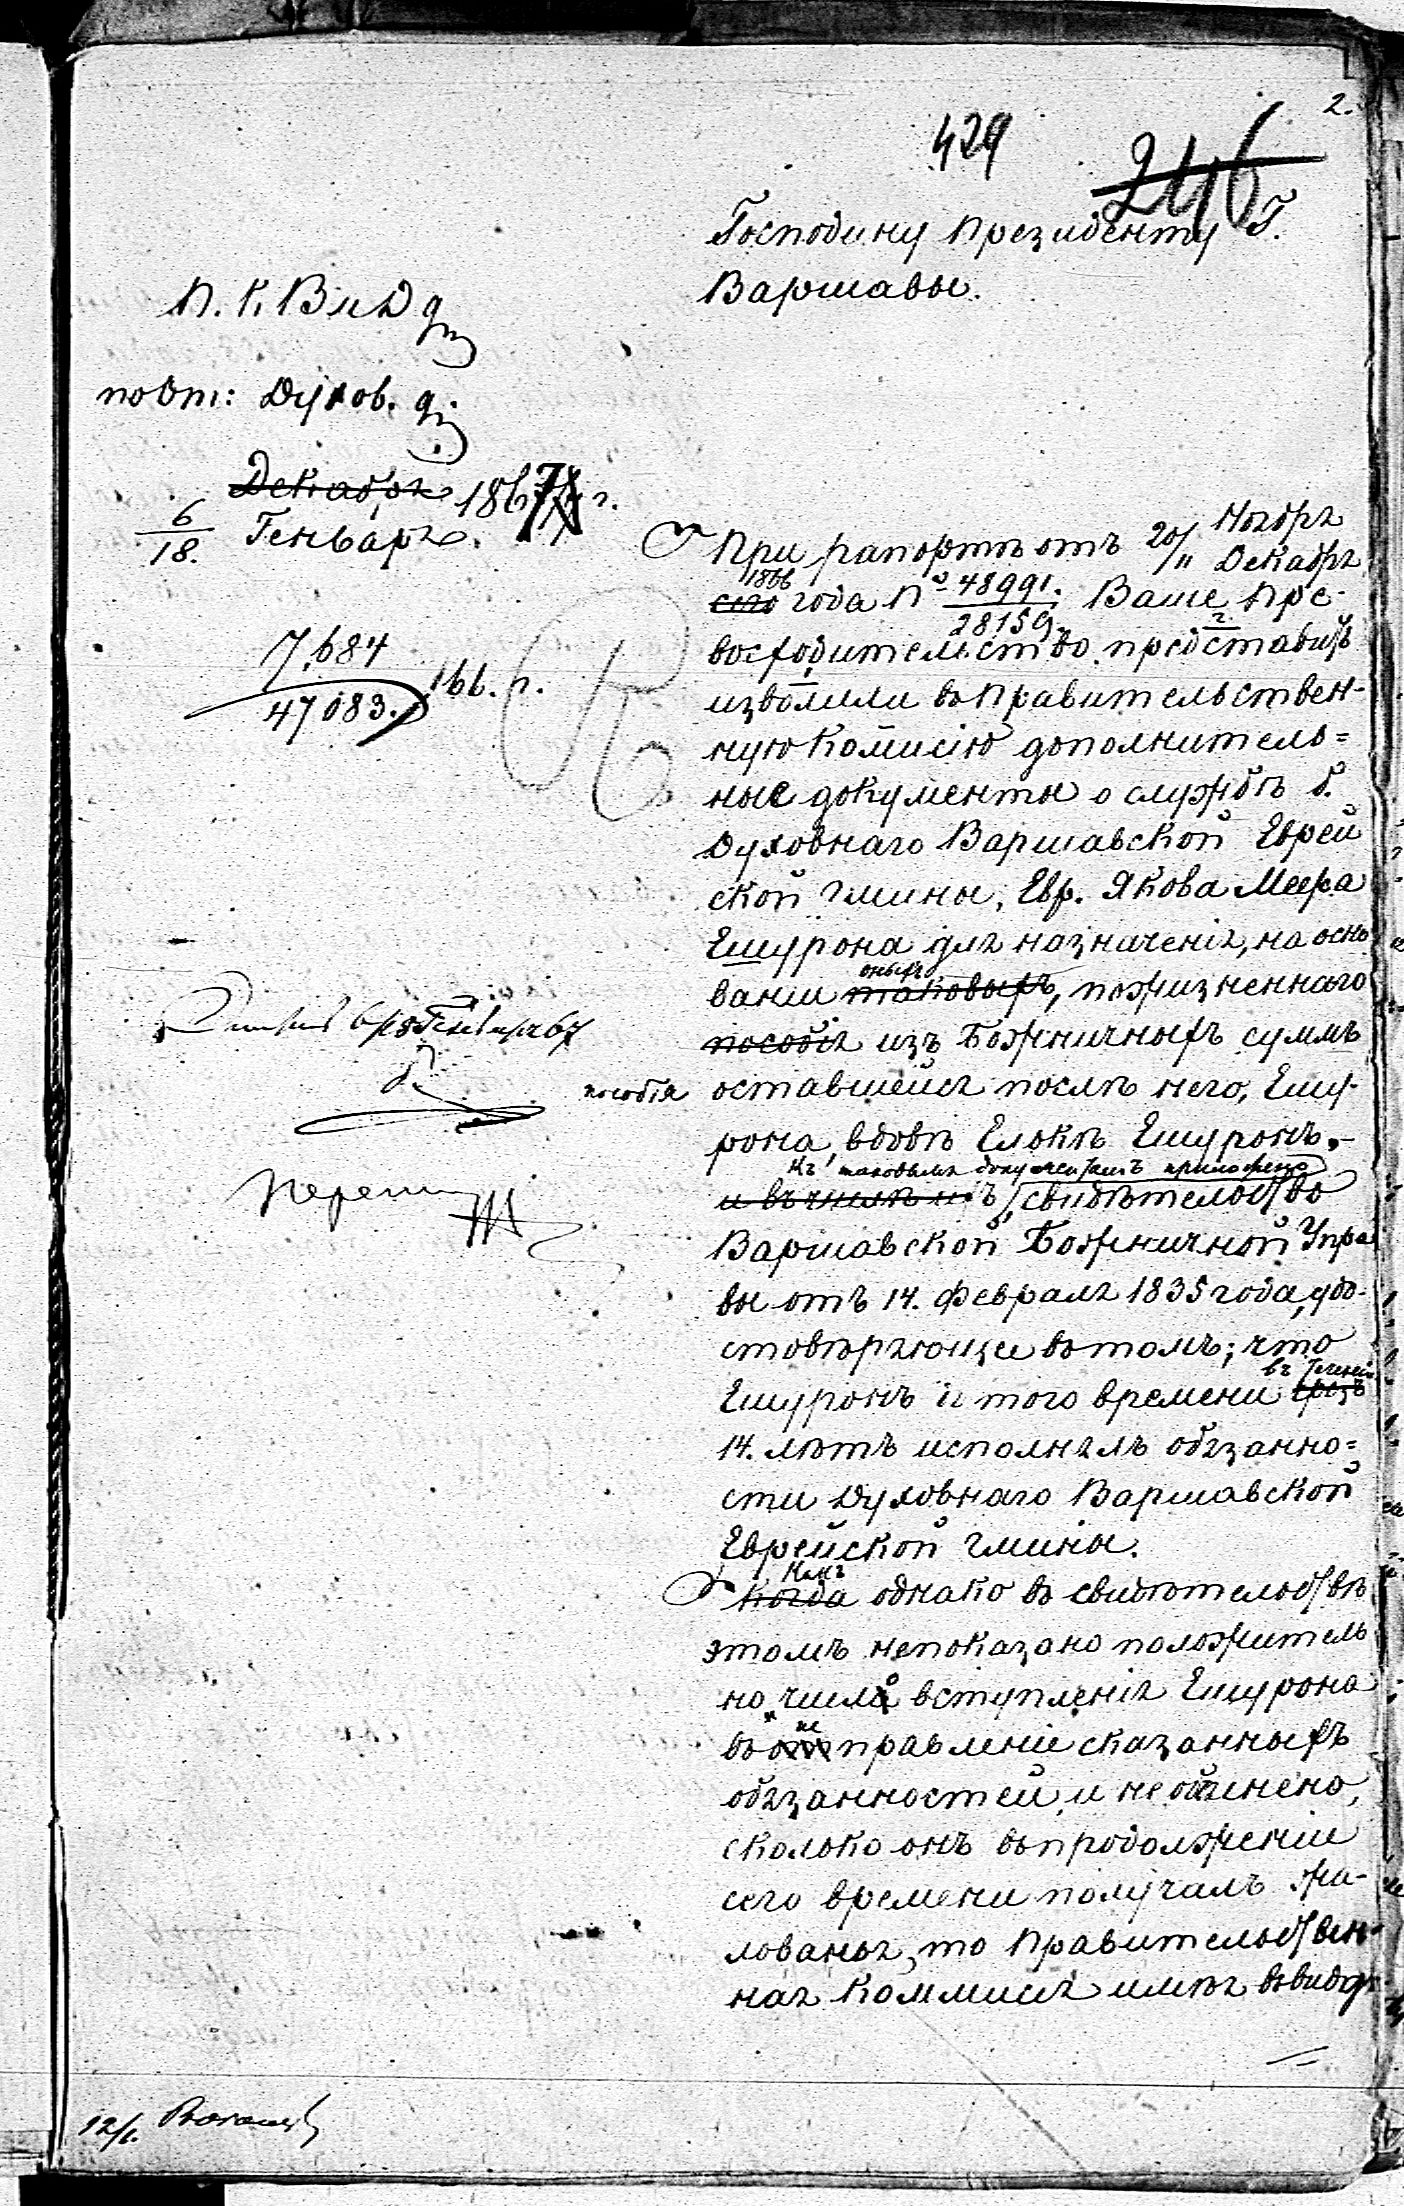 2.
429
246
Господину Президенту Г.
Варшавы.
П. К. В и Д
по От: Духов.
Декабря 1867 г.
6/18. Генваря.
7,684
47083. 166. п.
При рапортѣ отъ 20/11 Ноября Декабря
1866
сего года № 48991. Ваше Пре-
28159.
восходительство представить
изволили въ Правительствен-
ную Комисію дополнитель=
ные документы о службѣ б.
Духовнаго Варшавской Еврей
ской гмины, Евр. Якова Меера
Ешурона для назначенія, на осно
оныхъ
ваніи таковыхъ, пожизненнаго
пособія изъ Божничныхъ суммъ
пособія оставшейся послѣ него, Ешу-
рона, вдовѣ Елокѣ Ешуронъ.
Къ таковымъ документамъ приложено
свидѣтельство
Варшавской Божничной Упра
вы отъ 14. Февраля 1835 года, удо-
стовѣряющее въ томъ, что
въ теченіи
Ешуронъ до того времени чрезъ
14. лѣтъ исполнялъ обязанно=
сти Духовнаго Варшавской
Еврейской гмины.
Какъ
Когда однако въ свидѣтельствѣ
этомъ не показано положитель
но числа вступленія Ешурона
въ отправленіе сказанныхъ
обязанностей и не
сколько онъ въ продолженіи
сего времени получалъ жа-
лованья, то Правительствен-
ная Коммисія имѣя въ виду
12/1.